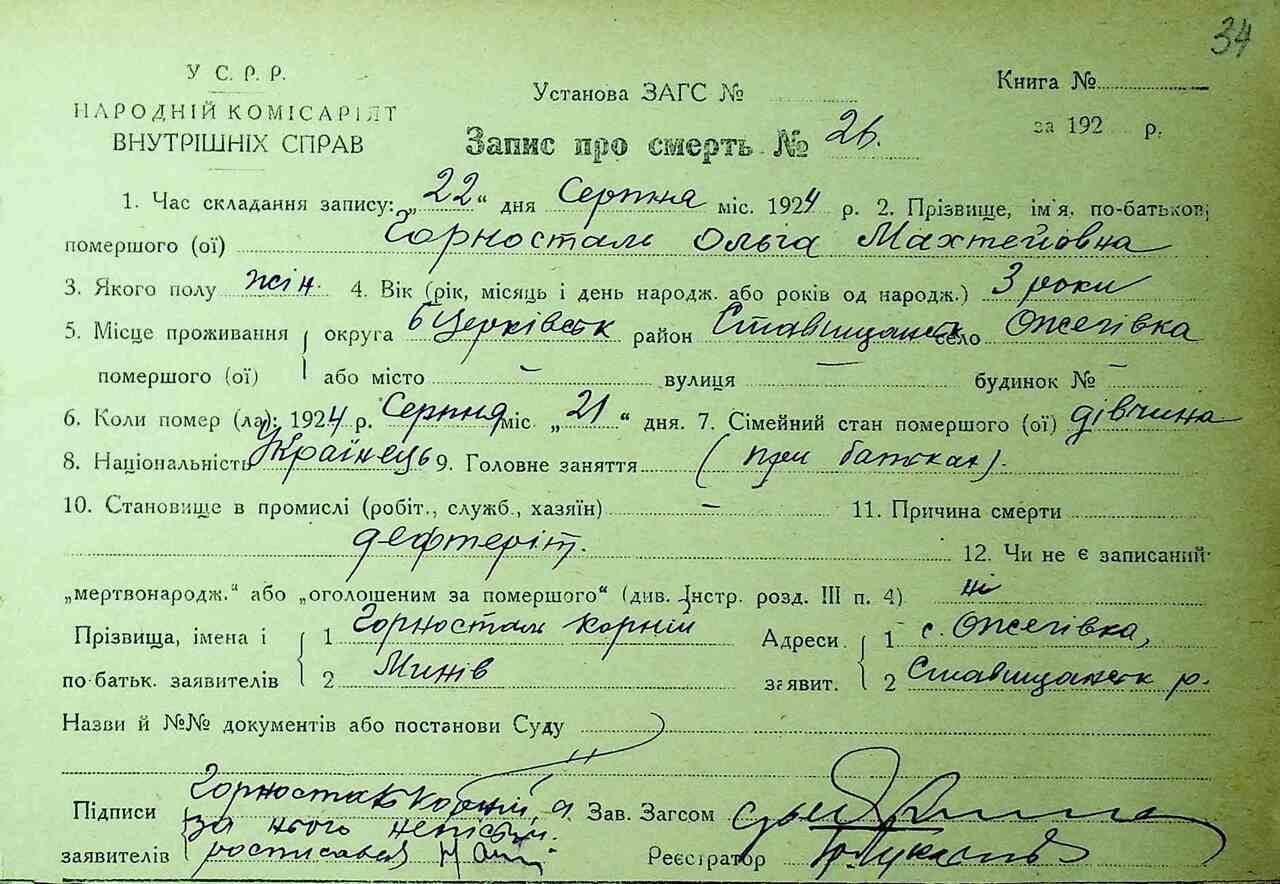 34
У С. Р. Р.
НАРОДНІЙ КОМІСАРІЯТ
ВНУТРІШНІХ СПРАВ
Установа ЗАГС №
Книга №
за 192 р.
Запис про смерть № 26.
1. Час складання запису: „22“ дня Серпня міс. 1924 р. 2. Прізвище, ім'я, по-батькові
помершого (ої) Горносталь Ольга Махтейовна
3. Якого полу жін. 4. Вік (рік, місяць і день народж. або років од народж.) 3 роки
5. Місце проживання округа БЦерківськ район Ставищанськ село Ожегівка
помершого (ої) або місто – вулиця – будинок № –
6. Коли помер (ла): 1924 р. Серпня міс. „21“ дня. 7. Сімейний стан помершого (ої) дівчина
8. Національність Українець 9. Головне заняття (при батьках).
10. Становище в промислі (робіт., служб., хазяїн) – 11. Причина смерти
дефтеріт. 12. Чи не є записаний
„мертвонародж.“ або „оголошеним за помершого“ (див. Інстр. розд. III п. 4) ні
Прізвища, імена і 1 Горносталь Корній Адреси 1 с. Ожегівка,
по-батьк. заявителів 2 Минів заявит. 2 Ставищанськ р.
Назви й №№ документів або постанови Суду
Підписи Горносталь Корній, а Зав. Загсом
за нього неписьм.
заявителів росписався Реєстратор